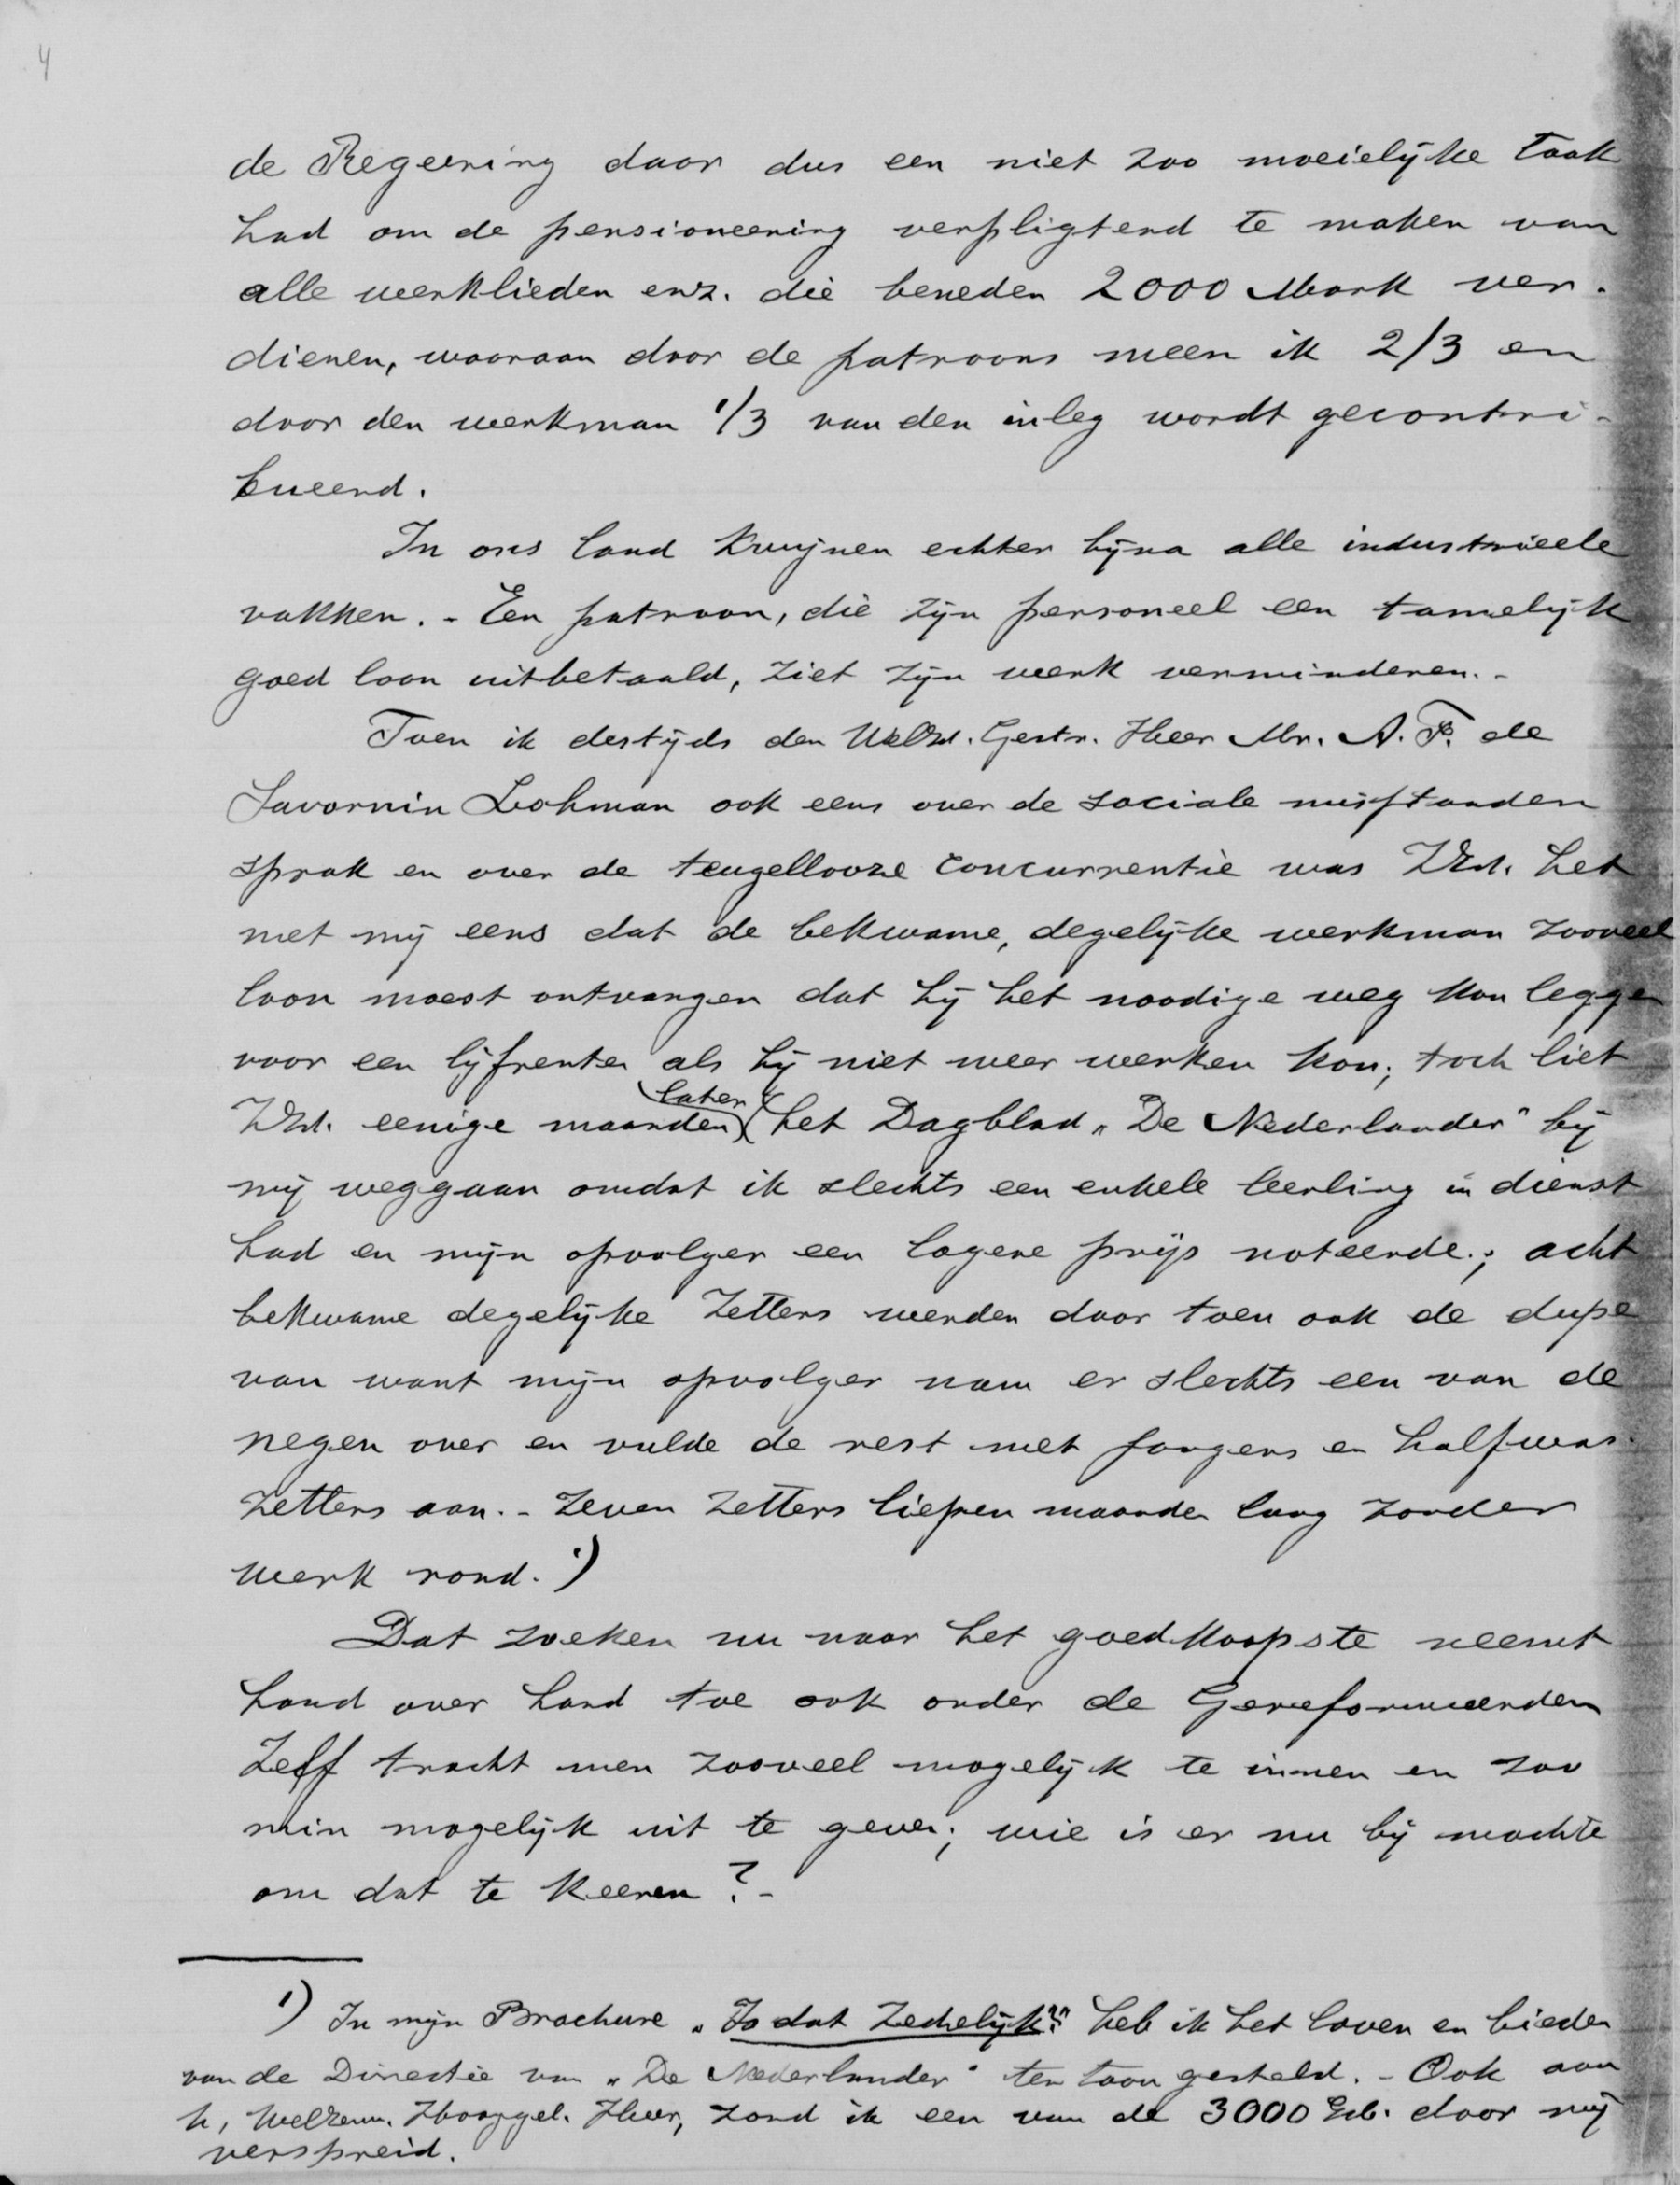 4
de Regeering daar dus een niet zoo moeielijke taak
had om de pensioneering verpligtend te maken van
alle werklieden enz. die beneden 2000 Mark ver-
dienen, waaraan door de patroons meen ik 2/3 en
door den werkman 1/3 van den inleg wordt gecontri-
bueerd.
In ons land kwijnen echter bijna alle industrieele
vakken. - Een patroon, die zijn personeel een tamelijk
goed loon uitbetaald, ziet zijn werk verminderen. -
Toen ik destijds den WelEd. Gestr. Heer Mr. A. F. de
Savornin Lohman ook eens over de sociale misstanden
sprak en over de teugellooze concurrentie was ZEd. het
met mij eens dat de bekwame, degelijke werkman zooveel
loon moest ontvangen dat hij het noodige weg kon leggen
voor een lijfrente als hij niet meer werken kon; toch liet
ZEd. eenige maanden later het Dagblad „De Nederlander" bij
mij weggaan omdat ik slechts een enkele leerling in dienst
had en mijn opvolger een lagere prijs noteerde.; acht
bekwame degelijke zetters werden daar toen ook de dupe
van want mijn opvolger nam er slechts een van de
negen over en vulde de rest met jongens en halfwas-
zetters aan. - Zeven zetters liepen maanden lang zonder
werk rond. 1)
Dat zoeken nu naar het goedkoopste neemt
hand over hand toe ook onder de Gereformeerden
Zelf tracht men zooveel mogelijk te innen en zoo
min mogelijk uit te geven; wie is er nu bij machte
om dat te keeren? -
1) In mijn Brochure „Is dat Zedelijk?" heb ik het loven en bieden
van de Directie van „De Nederlander" ten toon gesteld. - Ook aan
U, WelEerw. Hooggel. Heer, zond ik een van de 3000 Ex. door mij
verspreid.